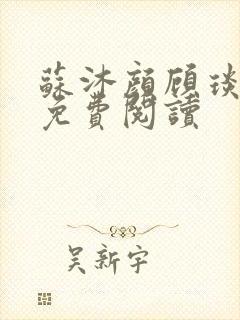 蘇沐顔顧琰
免費閱讀
吴新宇